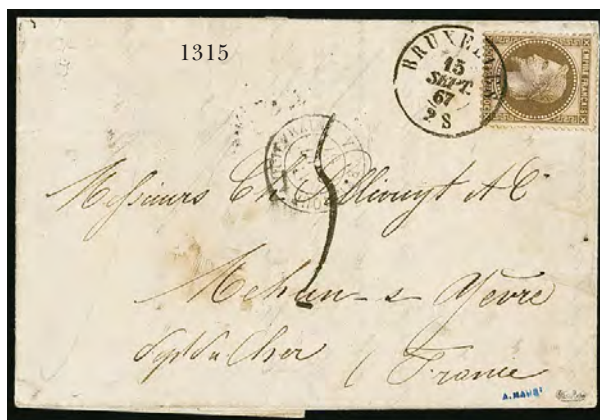 1315
BRUXEL
15
SEPT.
67
2 S
EMPIRE FRANCAIS
5
Messieurs Ch. Pillivuyt & Cie
Mehun-s-Yèvre
Dept du Cher (France
A. MAURY